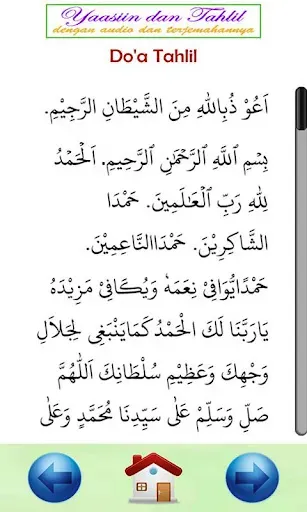 Yaasiin dan Tahlil
dengan audio dan terjemahannya
Do'a Tahlil
اَعُوْ ذُبِاللهِ مِنَ الشَّيْطَانِ الرَّجِيْمِ.
بِسْمِ ٱللَّهِ ٱلرَّحْمَٰنِ ٱلرَّحِيمِ. اَلْحَمْدُ
لِلهِ رَبِّ ٱلْعَٰلَمِينَ. حَمْدَا
الشَّاكِرِيْنَ. حَمْدَاالنَّاعِمِيْنَ.
حَمْدًايُّوَافِىْ نِعَمَهٗ وَيُكَافِىْ مَزِيْدَهُ
يَارَبَّنَا لَكَ الْحَمْدُ كَمَايَنْبَغِى لِجَلاَلِ
وَجْهِكَ وَعَظِيْمِ سُلْطَانِكَ اَللّٰهُمَّ
صَلِّ وَسَلِّمْ عَلٰى سَيِّدِنَا مُحَمَّدٍ وَعَلٰى